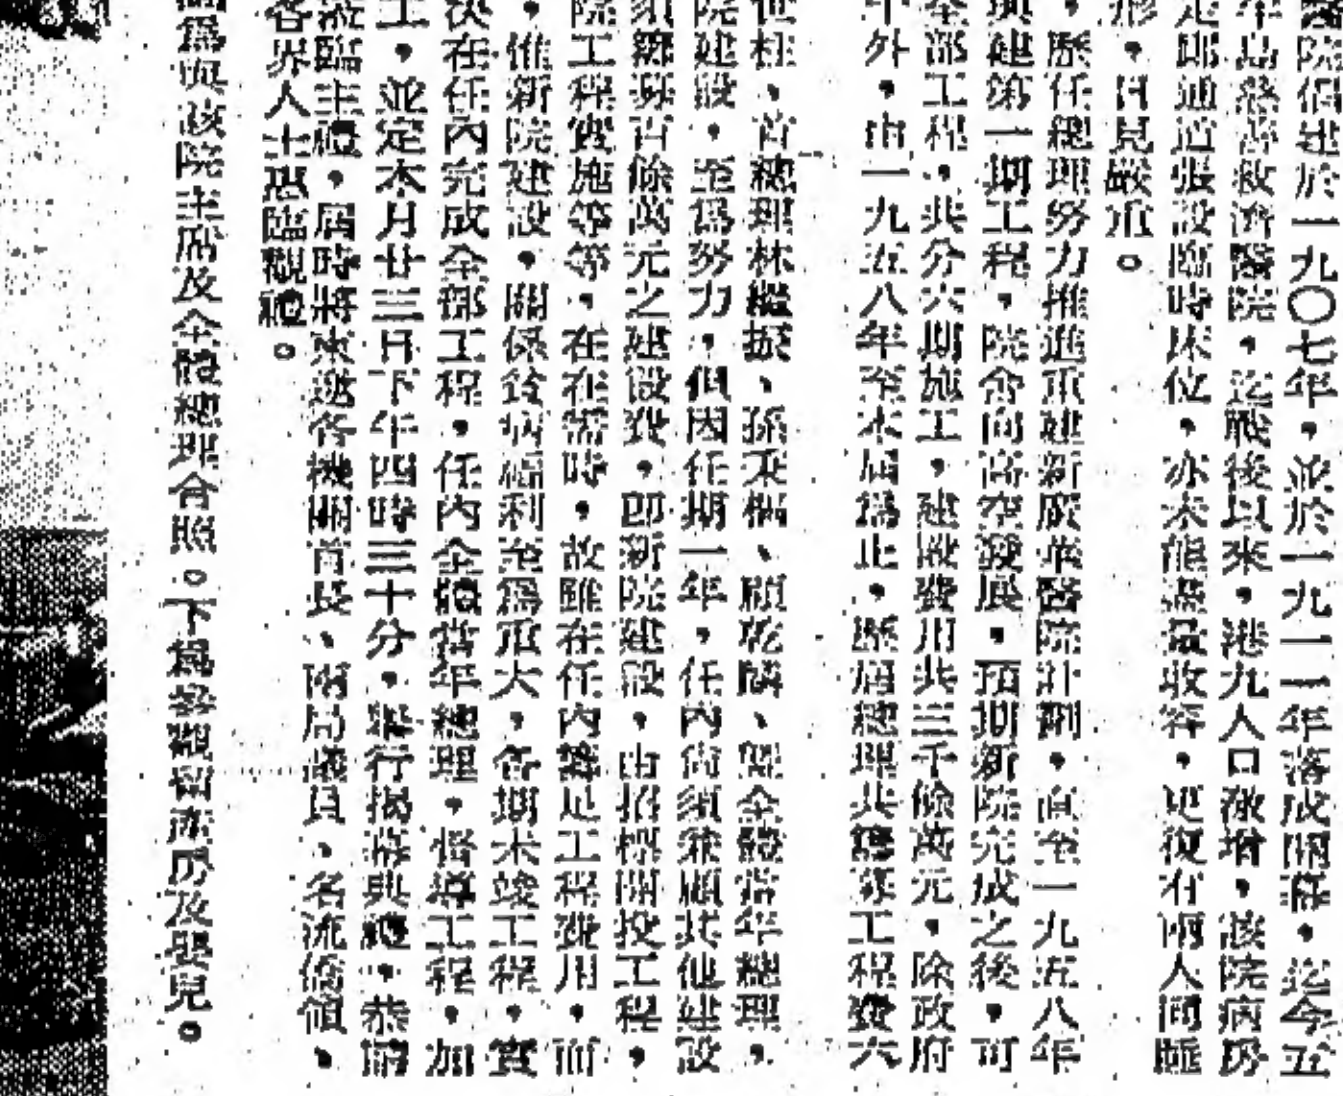 醫院倡建於一九〇七年，並於一九一一年落成開幕，迄今五
半島慈善救濟醫院，迄戰後以來，港九人口激增，該院病房
走郎通道張設臨時床位，亦未能盡量收容，更復有兩人同睡
形，日見嚴重。
，歷任總理努力推進重建新廣華醫院計劃，直至一九五八年
興建第一期工程，院舍向高空發展，預期新院完成之後，可
全部工程，共分六期施工，建設費用共三千餘萬元，除政府
外，由一九五八年至本屆為止，歷屆總理共籌募工程費六
世柱、首總理林繼振、孫秉樞、顧乾麟、暨全體當年總理，
院建設，至為努力，但因任期一年，任內尚須兼顧其他建設
須籌募百餘萬元之建設費，即新院建設，由招標開投工程，
院工程實施等等，在在需時，故雖在任內籌足工程費用，而
，惟新院建設，關係貧病福利至為重大，各期未竣工程，實
決在任內完成全部工程，任內全體當年總理，督導工程，加
工，並定本月廿三日下午四時三十分，舉行揭幕典禮，恭請
蒞臨主禮，屆時將柬邀各機關首長、兩局議員、名流僑領、
各界人士惠臨觀禮。
為與該院主席及全體總理合照。下為參觀留產房及嬰兒。